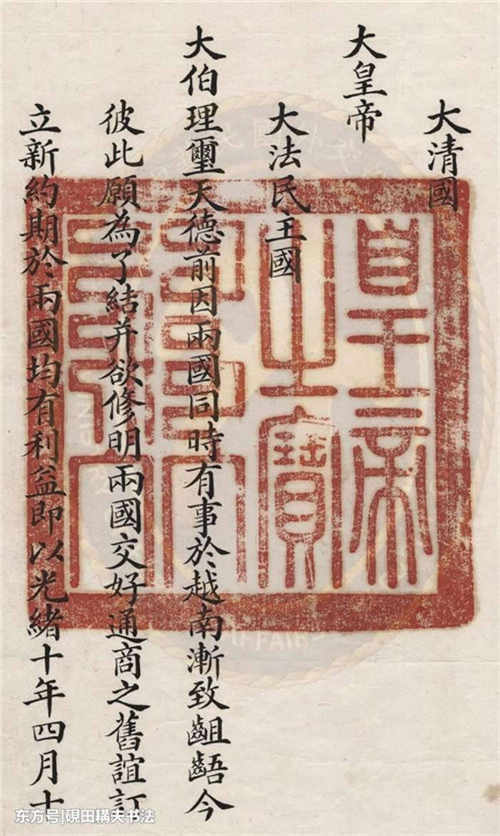 大清國
大皇帝
大法民主國
大伯理璽天德前因兩國同時有事於越南漸致齟齬今
彼此願為了結并欲修明兩國交好通商之舊誼訂
立新約期於兩國均有利益即以光緒十年四月十
皇帝
之寶
东方号|硯田耩夫书法